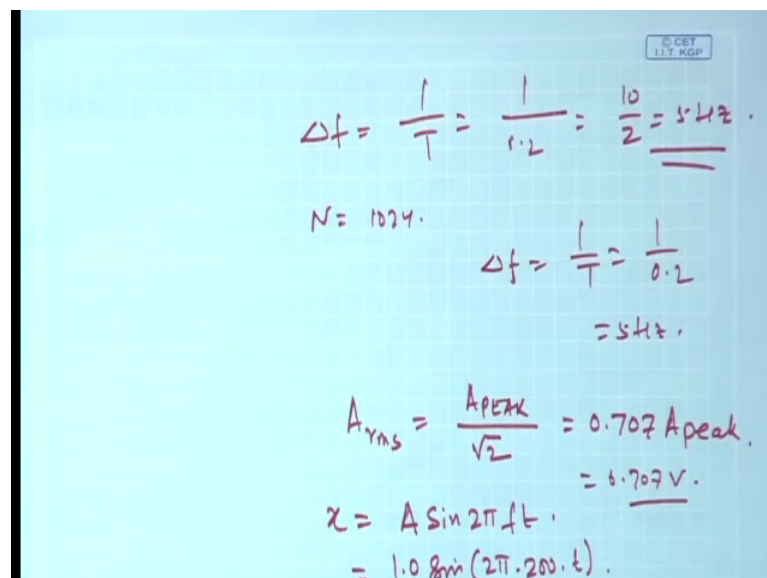 © CET
I.I.T. KGP
Δf = 1/T = 1/0.2 = 10/2 = 5 Hz.
N = 1024.
Δf = 1/T = 1/0.2
= 5 Hz.
Arms = APEAK/√2 = 0.707 Apeak.
= 0.707 V.
x = A Sin 2π ft.
= 1.0 Sin (2π.200.t).